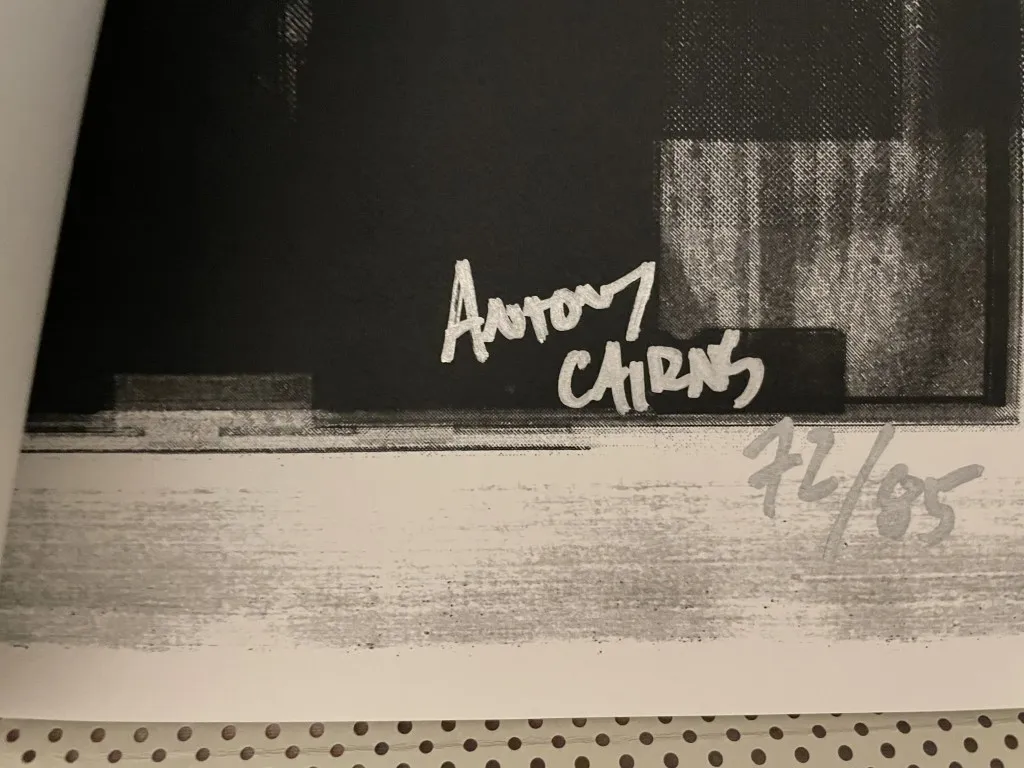 Antony
CAIRNS
72/85